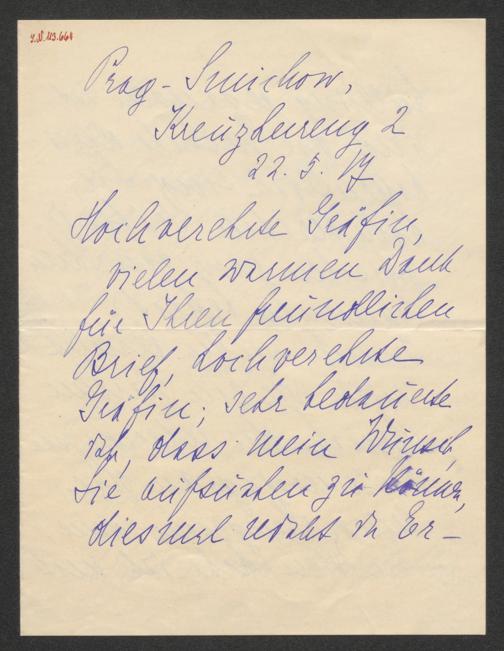 I.N. 119.664
Prag - Smichow,
Kreuzherreng 2
22. 5. 17
Hochverehrte Gräfin,
vielen warmen Dank
für Ihren freundlichen
Brief, hochverehrte
Gräfin; sehr bedauerte
ich, dass mein Wunsch,
Sie aufsuchen zu können,
diesmal nicht in Er-